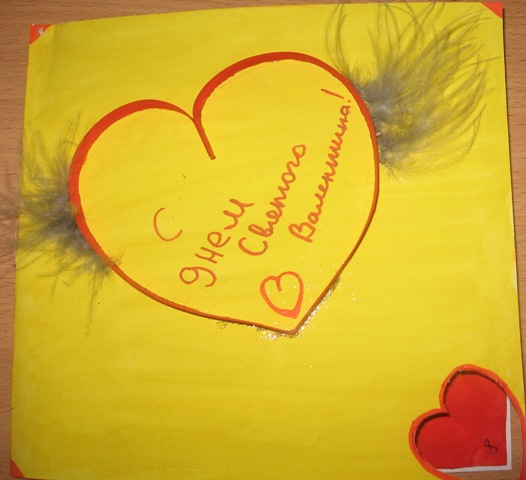 С
днем
Святого
Валентина!
8